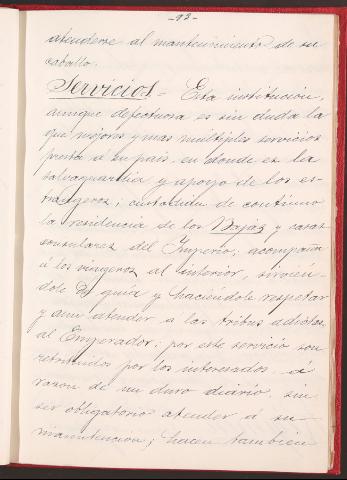 -92-
atenderse al mantenimiento de su
caballo.
Servicios = Esta institucion,
aunque defectuosa es sin duda la
que mejores y mas múltiples servicios
presta a su pais, en donde es la
salvaguardia y apoyo de los es-
trangeros; custodian de continuo
la residencia de los Bajás y casas
consulares del Imperio; acompaña
á los viageros al interior, sirvien-
dole de guia y haciéndole respetar
y aun atender a las tribus adictas
al Emperador; por este servicio son
retribuidos por los interesados á
razon de un duro diario, sin
ser obligatorio atender á su
manutencion; hacen tambien